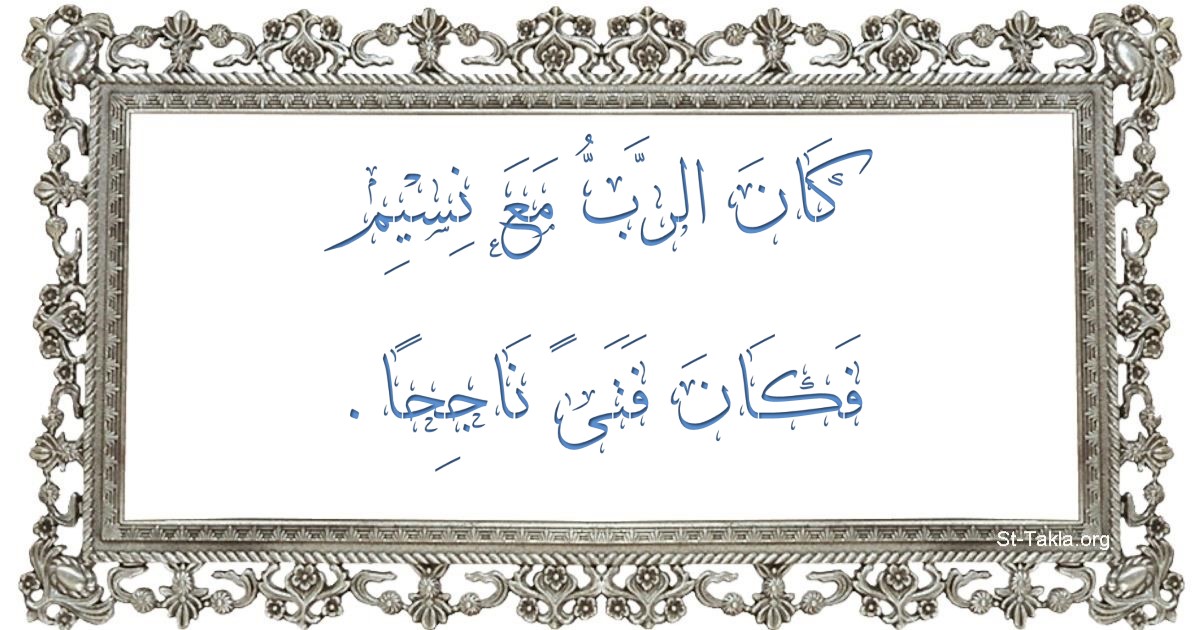 كَانَ الرَّبُّ مَعَ نِسِيْمِ
فَكَانَ فَتَىً نَاجِحًا .
St-Takla.org